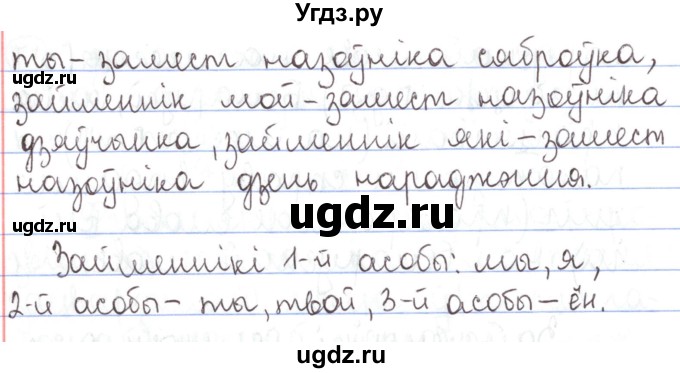 Угдз.ру
ты – замест назоўніка сяброўка,
займеннік мой – замест назоўніка
дзяўчынка, займеннік які – замест
назоўніка дзень нараджэння.
Займеннікі 1-й асобы: мы, я,
2-й асобы – ты, твой, 3-й асобы – ён.
ugdz.ru
ugdz.ru
ugdz.ru
ugdz.ru
ugdz.ru
ugdz.ru
ugdz.ru